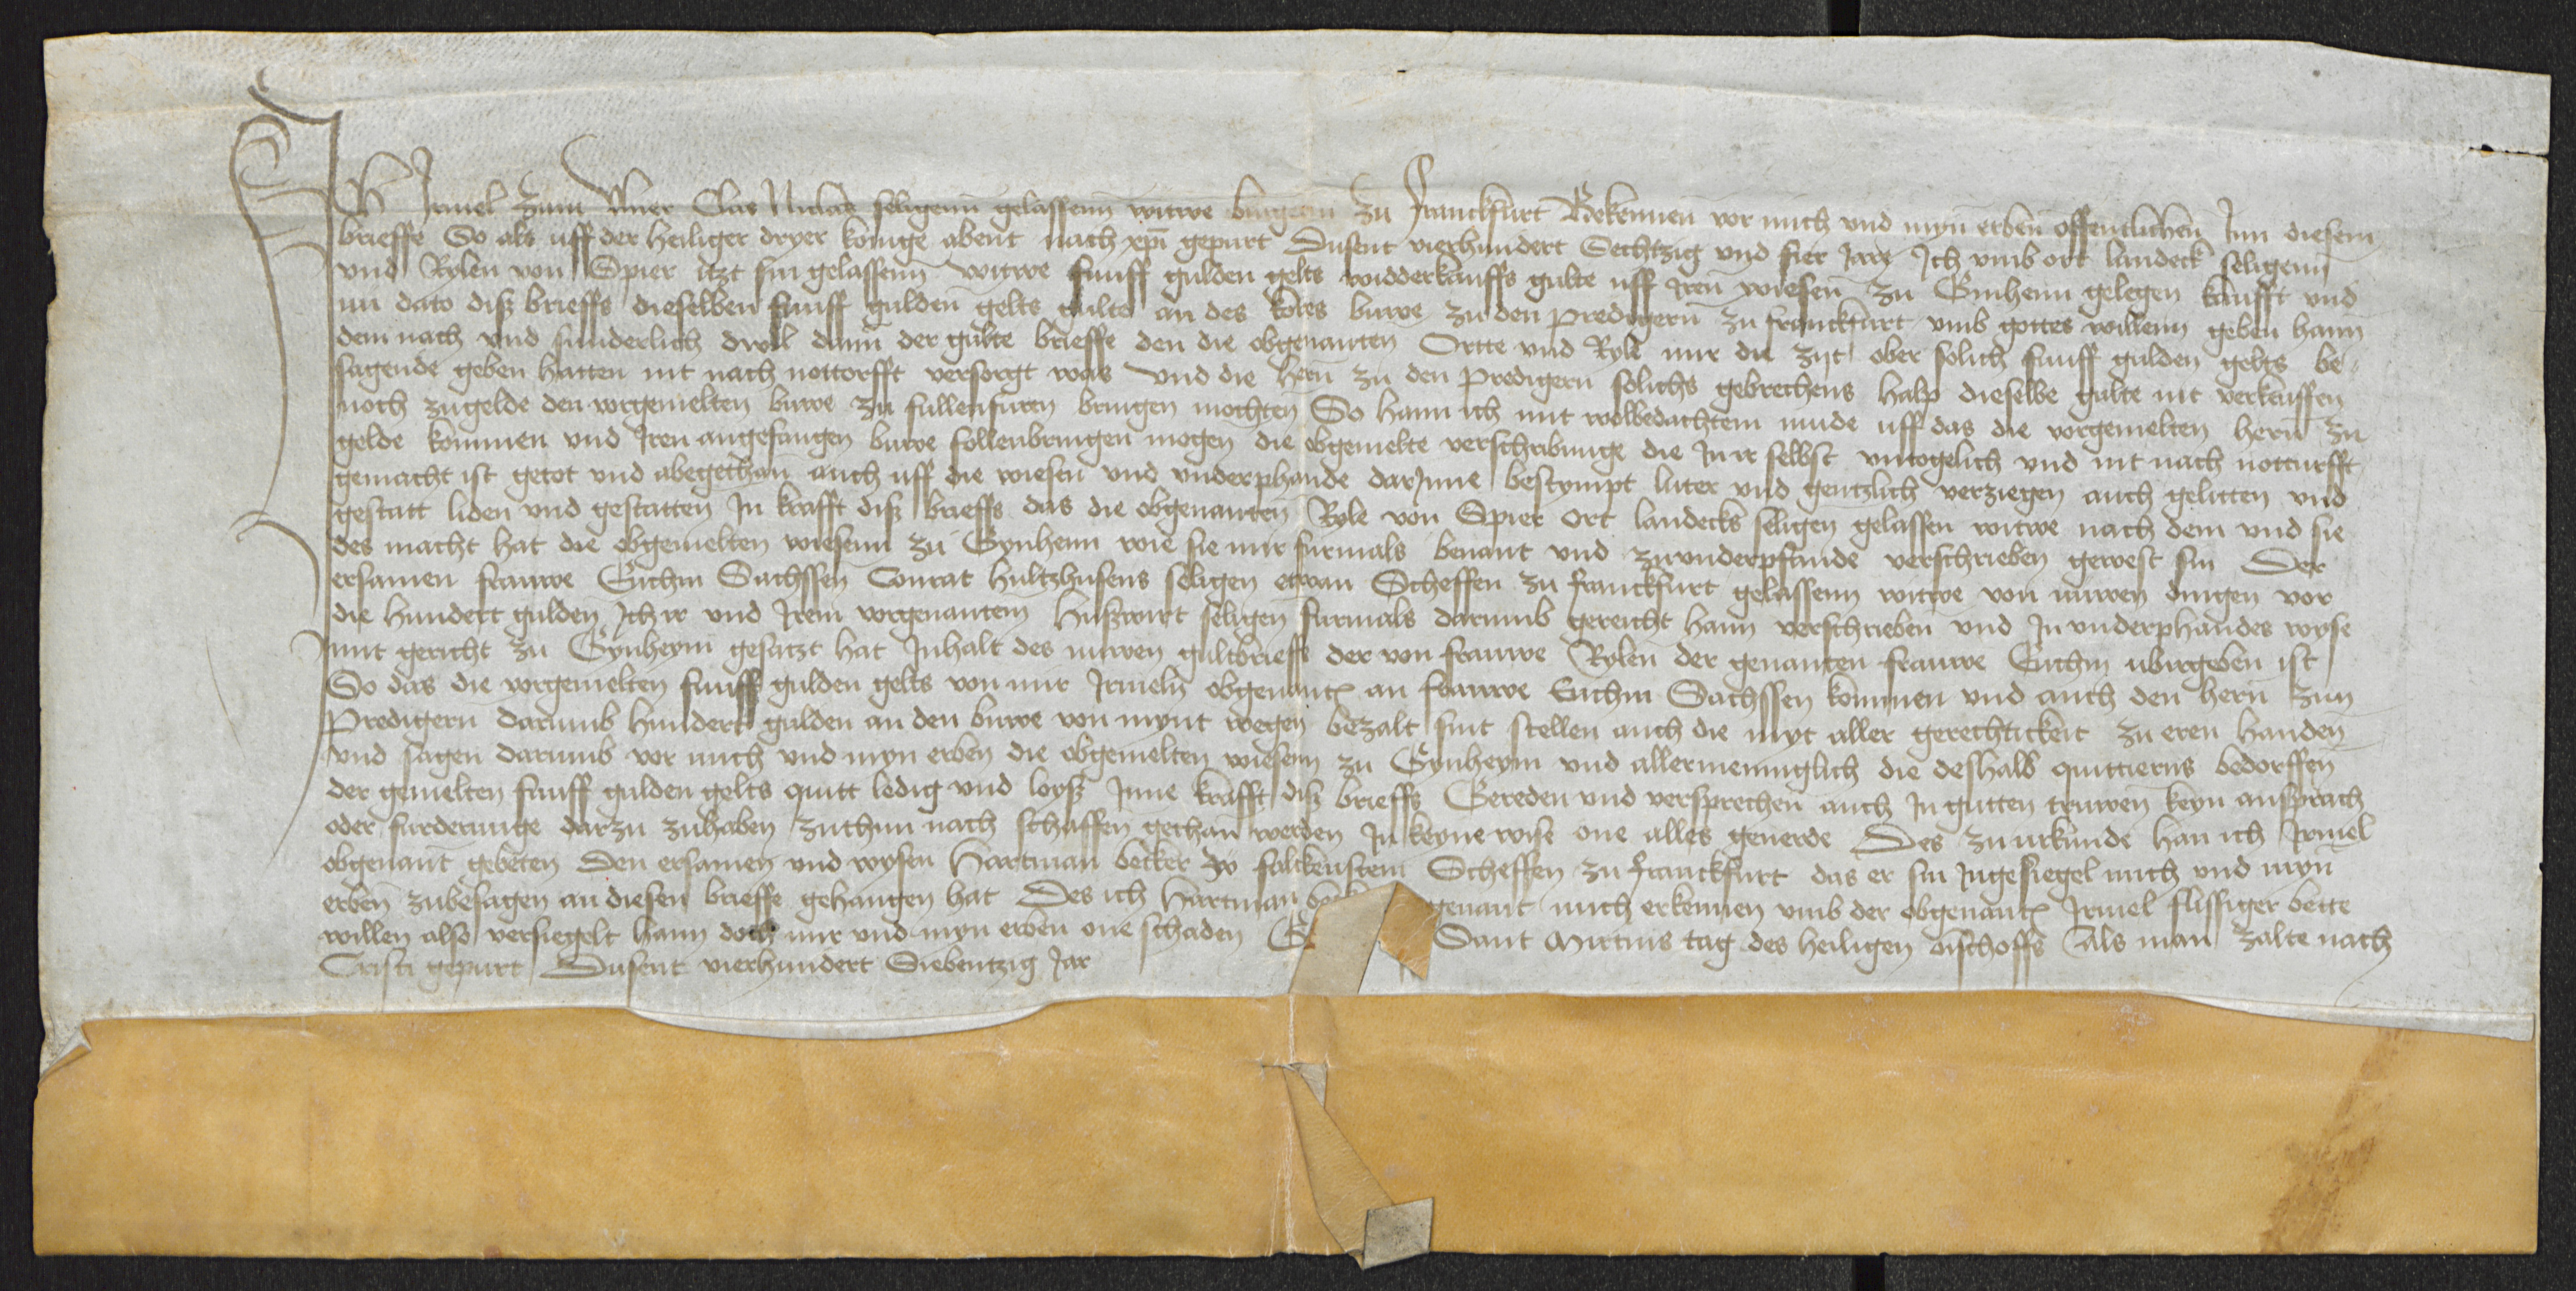 Ich Irmel zum Clas Niclas seligenn gelassenn witwe burgerin zu Franckfurt Bekennen vor mich vnd myn erben offentlichen Inn diesem
brieffe So als uff der heiliger dryer konige abent nach xpi gepurt Dusent vierhundert Sechtzig vnd fier Jare Ich vmb ort landeck seligenn
vnd Rylen von Spier itzt sin gelassenn witwe funff gulden gelts widderkauffs gulte uff iren wiesen zu Gynhenn gelegen kaufft vnd
nu dato disz brieffs dieselben funff gulden gelts gulte an des buwe zu den predigern zu franckfurt vmb gottes willenn geben hann
dem nach vnd sunderlich dwil dann der gulte brieffe den die obgenanten Ortte vnd Ryle mir die zyt ober solich funff gulden gelts be-
sagende geben hatten nit nach nottorfft versorgt was vnd die hern zu den predigern solichs gebrechens halp dieselbe gulte nit verkeuffen
noch zugelde den vorgemelten buwe zu fullenfuren bringen mochten So hann ich mit wolbedachtem mude uff das die vorgemelten hern zu
gelde kommen vnd Iren angefangen buwe follenbringen mogen die obgemelte verschribunge die In ir selbst vntogelich vnd nit nach notturfft
gemacht ist getot vnd abegethan auch uff die wiesen vnd vnderphande darInne bestympt luter vnd gentzlich verziegen auch gelitten vnd
gestatt liden vnd gestatten In krafft disz brieffs das die obgenanten Ryle von Spier ort landecks seligen gelassen witwe nach dem vnd sie
des macht hat die obgemelten wiesenn zu Gynhenn wie sie mir furmals benant vnd zuvnderpfande verschrieben gewest sin Der
ersamen frauwe Gichin Sachssen Conrat hultzhusens seligen etwan Scheffen zu franckfurt gelassenn witwe von nuwen dingen vor
die hundert gulden Ich ir vnd Irem vorgenantem huszwirt seligen furmals darumb gereicht hann verschrieben vnd In vnderphandes wyse
mit gericht zu Gynheym gesatzt hat Inhalt des nuwen gultbrieffs der von frauwe Rylen der genanten frauwe Gichin ubirgeben ist
So das die vorgemelten funff gulden gelts von mir Irmeln obgenant an frauwe Gichin Sachssen kommen vnd auch den hern zun
Predigern darumb hundert gulden an den buwe von mynt wegen bezalt sint stellen auch die myt aller gerechtickeit zu eren handen
vnd sagen darumb vor mich vnd myn erben die obgemelten wiesenn zu Gynheym vnd allermenniglich die deshalb quittierns bedorffen
der gemelten funff gulden gelts quitt ledig vnd loysz Inne krafft disz brieffs Gereden vnd versprechen auch In gutten truwen keyn ansprach
oder furderunge darzu zuhaben zuthun nach schaffen gethan werden In keyne wise one alles geuerde Des zu urkunde han ich Irmel
obgenant gebeten den ersamen vnd wysen Hartman becker falckenstein Scheffen zu franckfurt das er sin Ingesiegel mich vnd myn
erben zubesagen an diesen brieffe gehangen hat Des ich Hartman genant mich erkennen vmb der obgenant Irmel flissiger bette
willen also versiegelt hann doch mir vnd myn erben one schaden Sant Mertins tag des heiligen bischoffs Als man zalte nach
Cristi gepurt Dusent vierhundert Siebentzig Jar